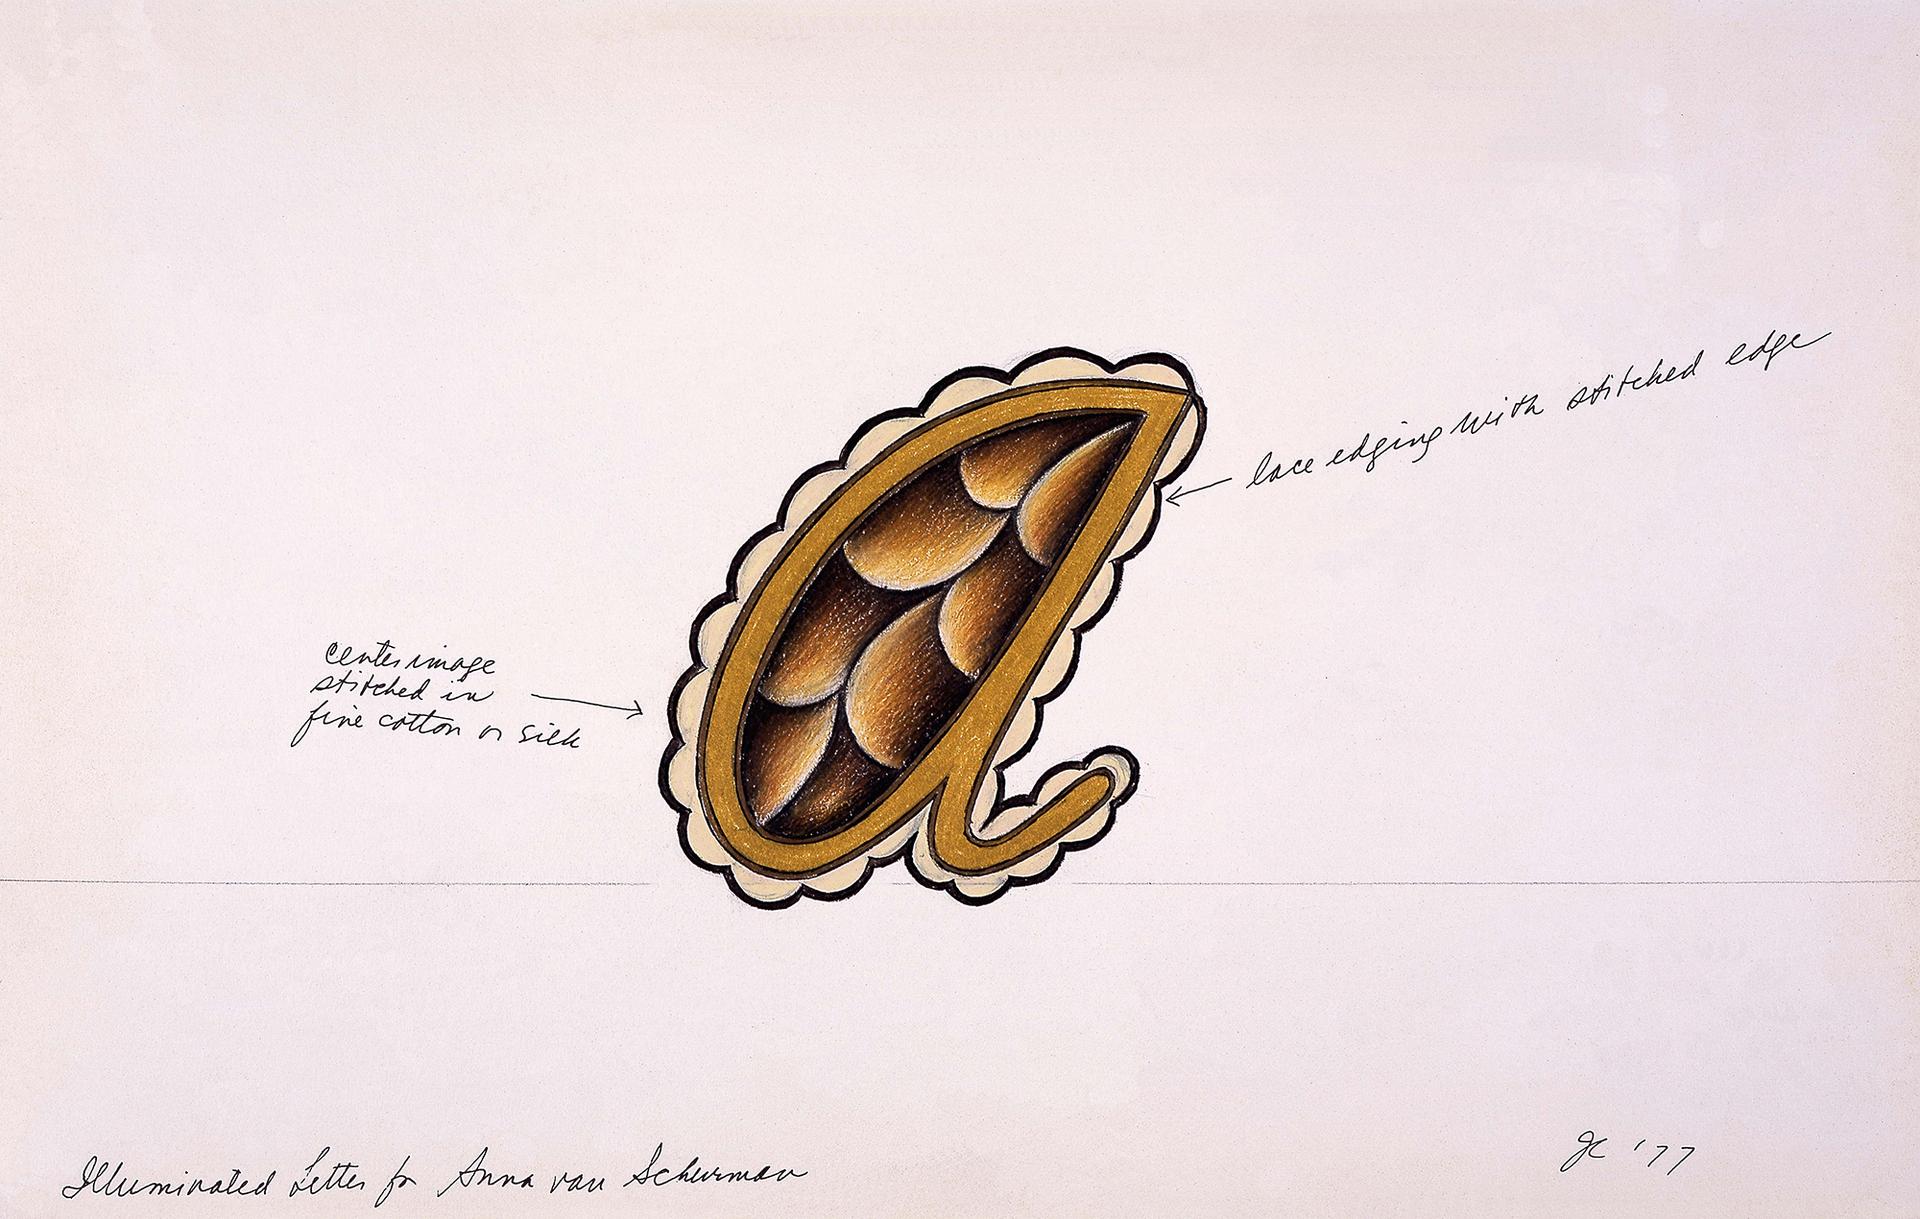 lace edging with stitched edge
center image
stitched in
fine cotton or silk
a
Illuminated Letter for Anna van Schurman
JC '77